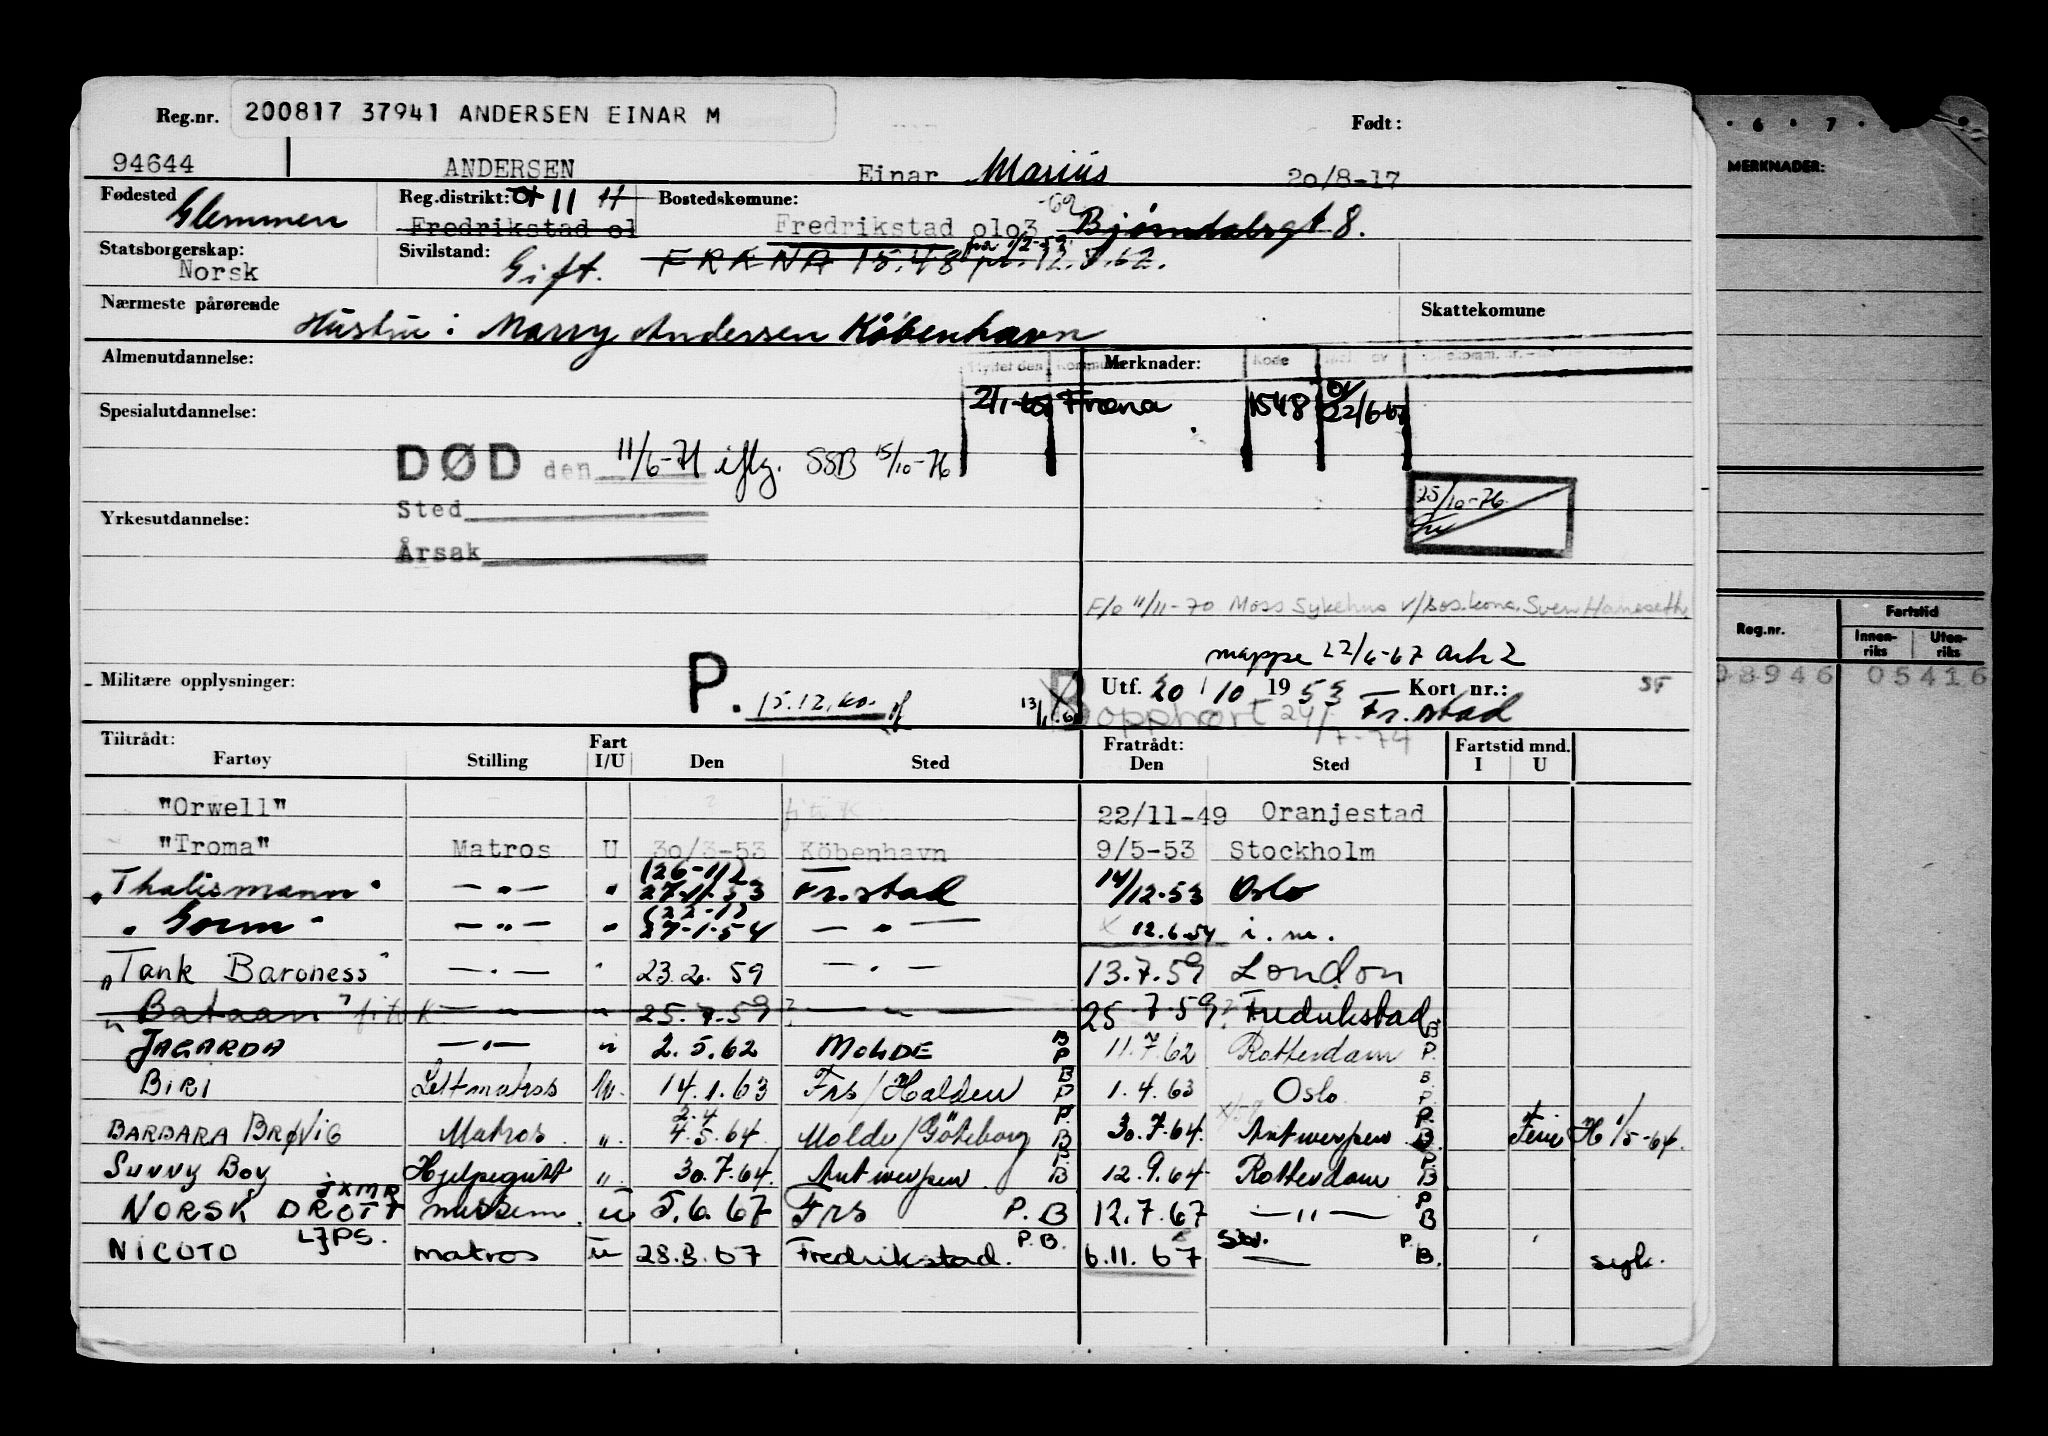 Reg.nr. 200817 37941 ANDERSEN EINAR M Født:
94644 ANDERSEN Einar Marius 20/8-17
Fødested Glemmen Reg.distrikt: 11 Bostedskomune: -69
Fredrikstad 01 Fredrikstad 0103 Bjørndalsgt 8.
Statsborgerskap: Norsk Sivilstand: Gift. FRÆNA 15.48 12.7.62.
Nærmeste pårørende Hustru: Marry Andersen København Skattekomune
Almenutdannelse: Flyttet den Kommune Merknader: Kode
Spesialutdannelse: 2/1-65 Fræna 1548 22/6-67
DØD den 11/6-71 iflg. SSB 15/10-76
Sted 25/10-76
Yrkesutdannelse:
Årsak
F/o 11/11-70 Moss Sykehus v/sos.kons. Sven Haneseth
mappe 22/6-67 ark 2
Militære opplysninger: P. 15.12.60. 13/1 B Utf. 20/10 1953 Kort nr.: SF
opphørt 24/7-74 Fr.stad
Tiltrådt: Fratrådt: Fartstid mnd.
Fartøy Stilling Fart I/U Den Sted Den Sted I U
"Orwell" 22/11-49 Oranjestad
"Troma" Matros U 30/3-53 Köbenhavn 9/5-53 Stockholm
"Thalismann" —"— " (26-11) 27-11-53 Fr.stad 14/12-53 Oslo
"Gorm" —"— " (22-1) 27-1-54 —"— 12.6.54 i.m.
"Tank Baroness" —"— " 23.2.59 —"— 13.7.59 London
"Bataan" —"— " 25.7.59? —"— 25.7.59? Fredrikstad
JAGARDA —"— " 2.5.62 MOLDE B P 11.7.62 Rotterdam B P.
BIRI Lettmatros U. 14.1.63 Frs/Halden B P 1.4.63 Oslo B. P.
BARBARA BRØVIG Matros " 2.4 4.5.64 Molde/Göteborg P. B 30.7.64. Antwerpen P. B. Ferie H 1/5-64.
SUNNY BOY Hjelpegutt " 30.7.64. Antwerpen P. B 12.9.64 Rotterdam P B
NORSK DROTT JXMR U 5.6.67 Frs P. B 12.7.67 —"— P B
NICOTO LJPS. matros U 28.8.67 Fredrikstad. P.B. 6.11.67 P. B. syk.
6 7
MERKNADER:
Reg.nr. Fartstid
Innen-riks Uten-riks
08946 05416